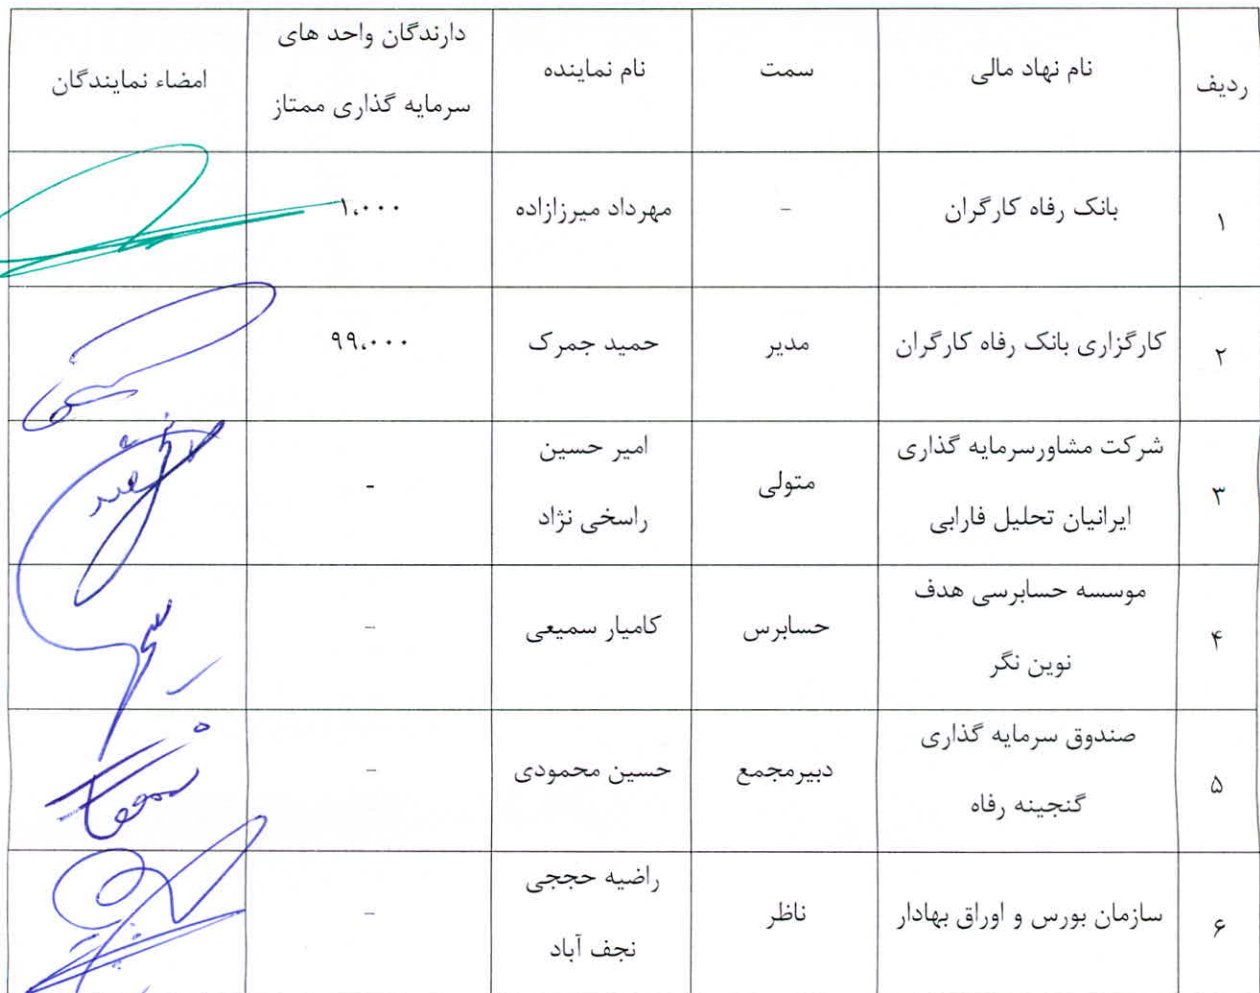 ردیف
نام نهاد مالی
سمت
نام نماینده
دارندگان واحد های
سرمایه گذاری ممتاز
امضاء نمایندگان
۱
بانک رفاه کارگران
-
مهرداد میرزازاده
۱،۰۰۰
۲
کارگزاری بانک رفاه کارگران
مدیر
حمید جمرک
۹۹،۰۰۰
۳
شرکت مشاورسرمایه گذاری
ایرانیان تحلیل فارابی
متولی
امیر حسین
راسخی نژاد
-
۴
موسسه حسابرسی هدف
نوین نگر
حسابرس
کامیار سمیعی
-
۵
صندوق سرمایه گذاری
گنجینه رفاه
دبیرمجمع
حسین محمودی
-
۶
سازمان بورس و اوراق بهادار
ناظر
راضیه حججی
نجف آباد
-